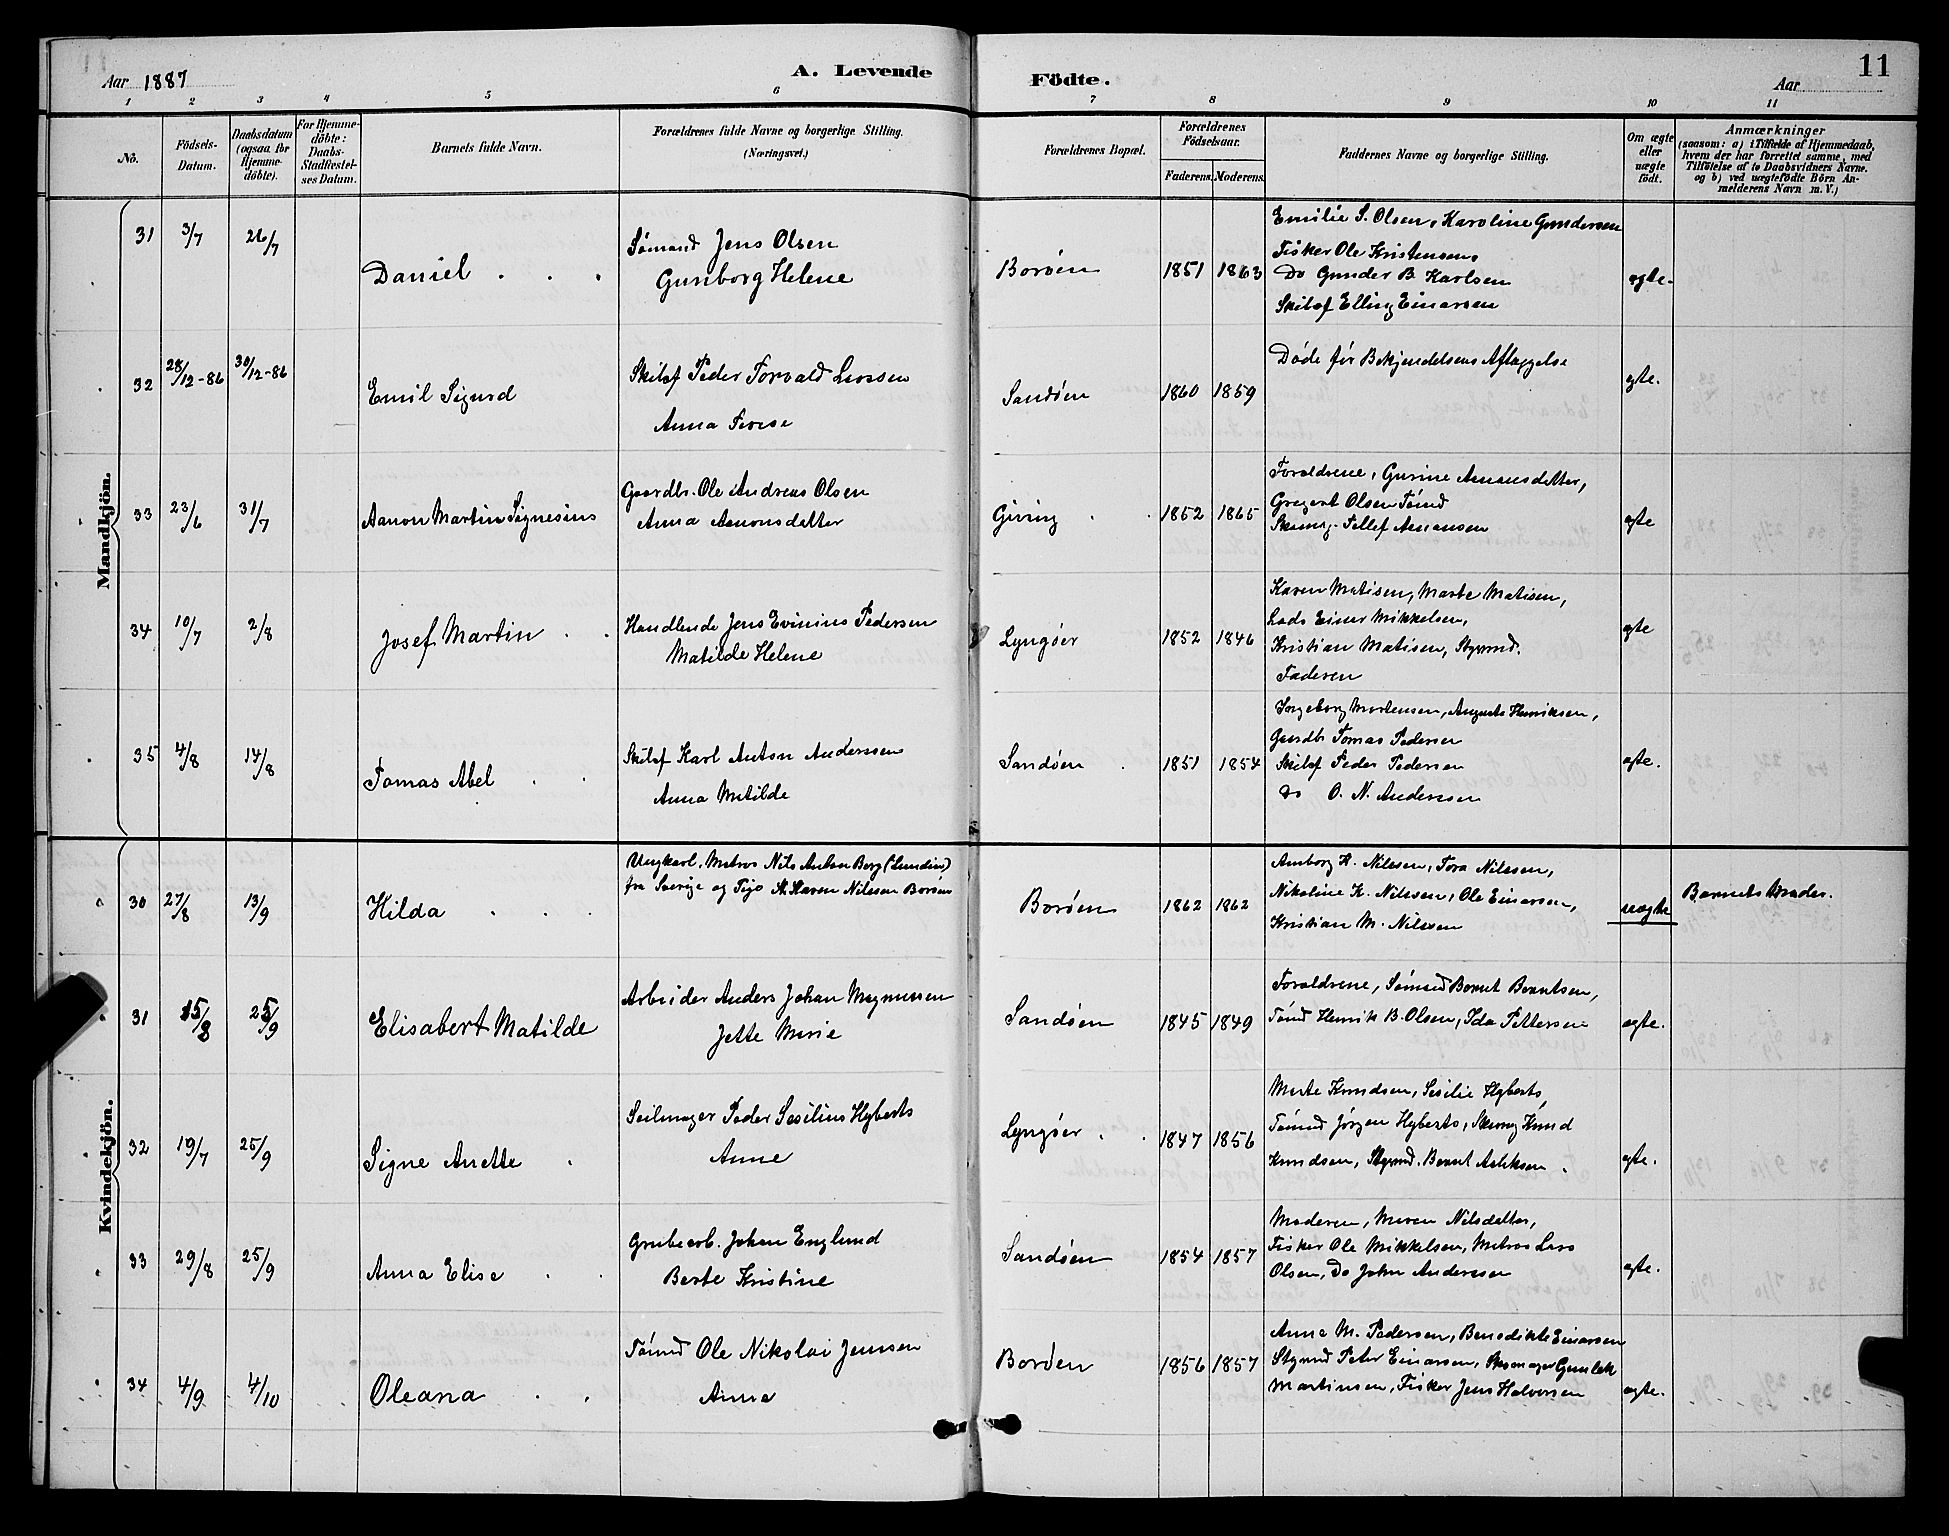 11
Aar 1887
A. Levende Födte.
Aar
1 2 3 4 5 6 7 8 9 10 11
No.
Födsels-Datum.
Daabsdatum (ogsaa for Hjemme-döbte).
For Hjemme-döbte: Daabs-Stadfæstel-ses Datum.
Barnets fulde Navn.
Forældrenes fulde Navne og borgerlige Stilling. (Næringsvei.)
Forældrenes Bopæl.
Forældrenes Födselsaar.
Faderens. Moderens.
Faddernes Navne og borgerlige Stilling.
Om ægte eller uægte födt.
Anmærkninger (saasom: a) i Tilfælde af Hjemmedaab, hvem der har forrettet samme, med Tilföielse af to Daabsvidners Navne. og b) ved uægtefödte Börn An-melderens Navn m. V.)
Mandkjön.
31 3/7 26/7 Daniel
Sømand Jens Olsen
Gunborg Helene
Borøen 1851 1863
Emilie S. Olsen, Karoline Gundersen
Fisker Ole Kristensen
Do Gunder B. Karlsen
Skibsf Elling Einarsen
ægte.
32 28/12-86 30/12-86 Emil Sigurd
Skibsf Peder Torvald
Anna
Sandøen 1860 1859
Døde før Bekjendelsens Aflæggelse
ægte.
33 23/6 31/7 Aanon Martin Signesius
Gaardbr. Ole Andreas Olsen
Anna Aanonsdatter
Giving 1852 1865
Forældrene, Gurine Aanonsdatter,
Gregert Olsen Tømd
Tellef Aanonsen
ægte
34 10/7 2/8 Josef Martin
Handlende Jens Evinius Pedersen
Matilde Helene
Lyngøer 1852 1846
Karen Matisen, Marte Matisen,
Lods Einer Mikkelsen,
Kristian Matisen, Styrmd.
Faderen
ægte
35 4/8 14/8 Tomas Abel
Skibsf Karl Anton Anderssen
Anna Matilde
Sandøen 1851 1854
Ingeborg Mortensen, Augusta Henriksen,
Gaardb Tomas Pedersen
Skibsf Peder Pedersen
Do O. N. Anderssen
ægte.
Kvindekjön.
30 27/8 13/9 Hilda
Ungkarl, Matros Nils Anton Berg (Lundin)
fra Sverige og Pige A. Karen Nilssen Borøen
Borøen 1862 1862
Amborg K. Nilssen, Tora Nilssen,
Nikoline K. Nilssen, Ole Einarsen,
Kristian M. Nilssen
uægte
Barnets Moder.
31 15/8 25/9 Elisabert Matilde
Arbeider Anders Johan Magnussen
Jette Marie
Sandøen 1845 1849
Forældrene, Sømand Bernt Berntsen,
Tømd Henrik B. Olsen, Ida Pettersen
ægte.
32 19/7 25/9 Signe Anette
Seilmager Peder Sesilius Hyberts
Anne
Lyngøer 1847 1856
Marte Knudsen, Sesilie Hyberts
Tømmd Jørgen Hyberts, Knud
Knudsen, Styrmd. Bernt Aslaksen.
ægte.
33 29/8 25/9 Anna Elise
Grubearb. Johan Englund
Berte Kristine
Sandøen 1854 1857
Moderen, Maren Nilsdatter,
Fisker Ole Mikkelsen, Matros Lars
Olsen, Do John Anderssen
ægte.
34 4/9 4/10 Oleana
Tømd Ole Nikolai Jensen
Anna
Borøen 1856 1857
Anna M. Pedersen, Benedikte Einarsen
Styrmd Peter Einarsen, Skomager Gunlek
Martinsen, Fisker Jens Halvorsen
ægte.